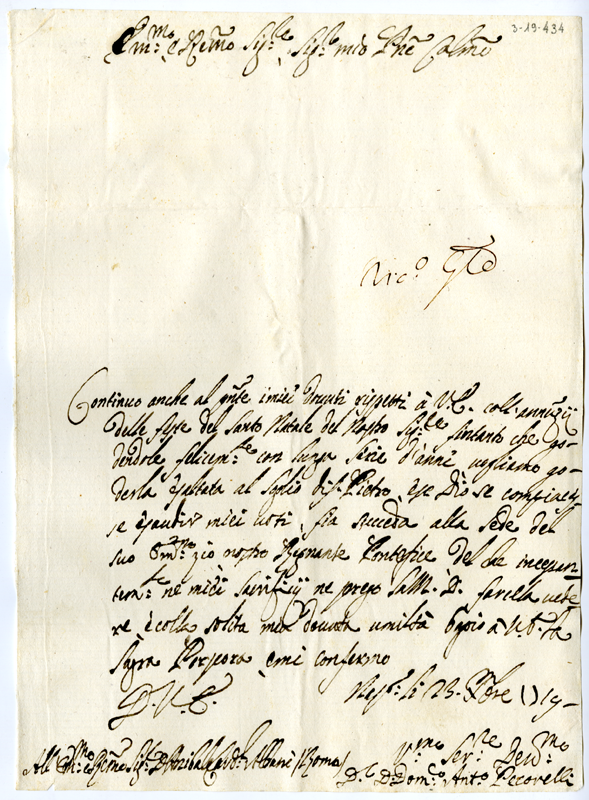 3-19-434
Em:mo e Remo Sig:re Sig:re mio Pne Colmo
Continuo anche al pnte i miei douuti rispetti à V. E. coll'annuzij
delle feste del Santo Natale del Nostro Sig:re sintanto che go-
dendole felicem:te con lunga serie d'anni uogliamo go-
derla esaltata al Soglio di S. Pietro, e se Dio se compiaces-
se esaudir miei uoti, sia succeda alla sede del
suo Em:mo zio nostro Regnante Pontefice del che incessan-
tem:te ne miei Sacrificij ne prego Sua M. D. farcela uede-
re è colla solita mia douuta umiltà bacio à V. E. la
Sagra Porpora, e mi confermo
D. V. E.
Nap:li li 23. Xbre 1719-
All'Em:mo e Remo Sig: D. Anibale Card: Albani (Roma)
U:mo Ser:re Deu:mo
D. Dom:co Ant:o Pecorelli